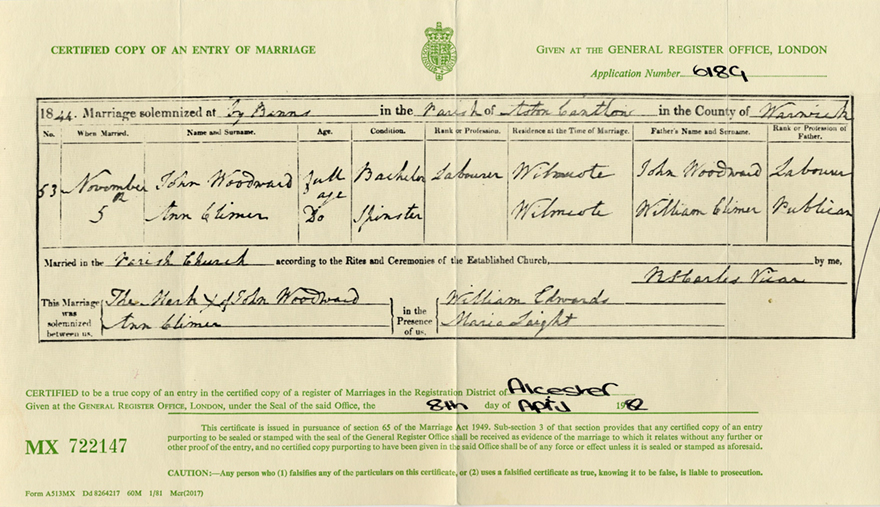 CERTIFIED COPY OF AN ENTRY OF MARRIAGE
GIVEN AT THE GENERAL REGISTER OFFICE, LONDON
Application Number 618G
1844. Marriage solemnized at by Banns in the Parish of Aston Cantlow in the County of Warwick
No. When Married. Name and Surname. Age. Condition. Rank or Profession. Residence at the Time of Marriage. Father's Name and Surname. Rank or Profession of Father.
53 November John Woodward full age Bachelor Labourer Wilmcote John Woodward Labourer
5th Ann Climer Do Spinster Wilmcote William Climer Publican
Married in the Parish Church according to the Rites and Ceremonies of the Established Church, by me,
Vicar
This Marriage was solemnized between us, The Mark X of John Woodward
Ann Climer
in the Presence of us, William Edwards
Maria Laight
CERTIFIED to be a true copy of an entry in the certified copy of a register of Marriages in the Registration District of Alcester
Given at the GENERAL REGISTER OFFICE, LONDON, under the Seal of the said Office, the 8th day of April 1982
MX 722147
This certificate is issued in pursuance of section 65 of the Marriage Act 1949. Sub-section 3 of that section provides that any certified copy of an entry
purporting to be sealed or stamped with the seal of the General Register Office shall be received as evidence of the marriage to which it relates without any further or
other proof of the entry, and no certified copy purporting to have been given in the said Office shall be of any force or effect unless it is sealed or stamped as aforesaid.
CAUTION:—Any person who (1) falsifies any of the particulars on this certificate, or (2) uses a falsified certificate as true, knowing it to be false, is liable to prosecution.
Form A513MX Dd 8264217 60M 1/81 Mcr(2017)